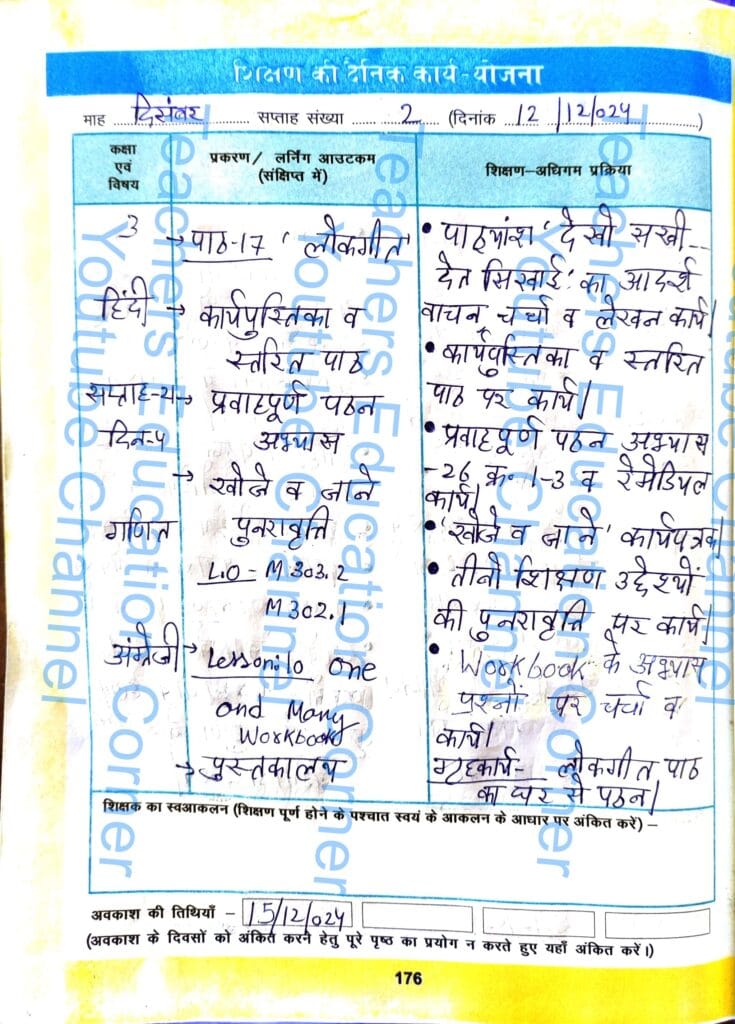 शिक्षण की दैनिक कार्य-योजना
माह दिसंबर सप्ताह संख्या 2 (दिनांक 12/12/024)
कक्षा एवं विषय
प्रकरण/ लर्निंग आउटकम (संक्षिप्त में)
शिक्षण-अधिगम प्रक्रिया
3
हिंदी
सप्ताह-24
दिन-4
गणित
अंग्रेजी
→ पाठ-17 'लोकगीत'
→ कार्यपुस्तिका व
स्तरित पाठ
→ प्रवाहपूर्ण पठन
अभ्यास
→ खोजे व जाने
पुनरावृत्ति
L.O - M 303.2
M 302.1
→ Lesson:10 One
and Many
Workbook
→ पुस्तकालय
• पाठ्यांश 'देखो सखी--
देत सिखाई' का आदर्श
वाचन, चर्चा व लेखन कार्य।
• कार्यपुस्तिका व स्तरित
पाठ पर कार्य।
• प्रवाहपूर्ण पठन अभ्यास
-26 क्र. 1-3 व रेमेडियल
कार्य।
• 'खोजे व जाने' कार्यपत्रक।
• तीनो शिक्षण उद्देश्यों
की पुनरावृत्ति पर कार्य।
• Workbook के अभ्यास
प्रश्नों पर चर्चा व
कार्य।
गृहकार्य- लोकगीत पाठ
का घर से पठन।
शिक्षक का स्वआकलन (शिक्षण पूर्ण होने के पश्चात स्वयं के आकलन के आधार पर अंकित करें) –
अवकाश की तिथियाँ – 15/12/024
(अवकाश के दिवसों को अंकित करने हेतु पूरे पृष्ठ का प्रयोग न करते हुए यहाँ अंकित करें।)
176
Teachers Education Corner
Youtube Channel
Teachers Education Corner
Youtube Channel
Teachers Education Corner
Youtube Channel